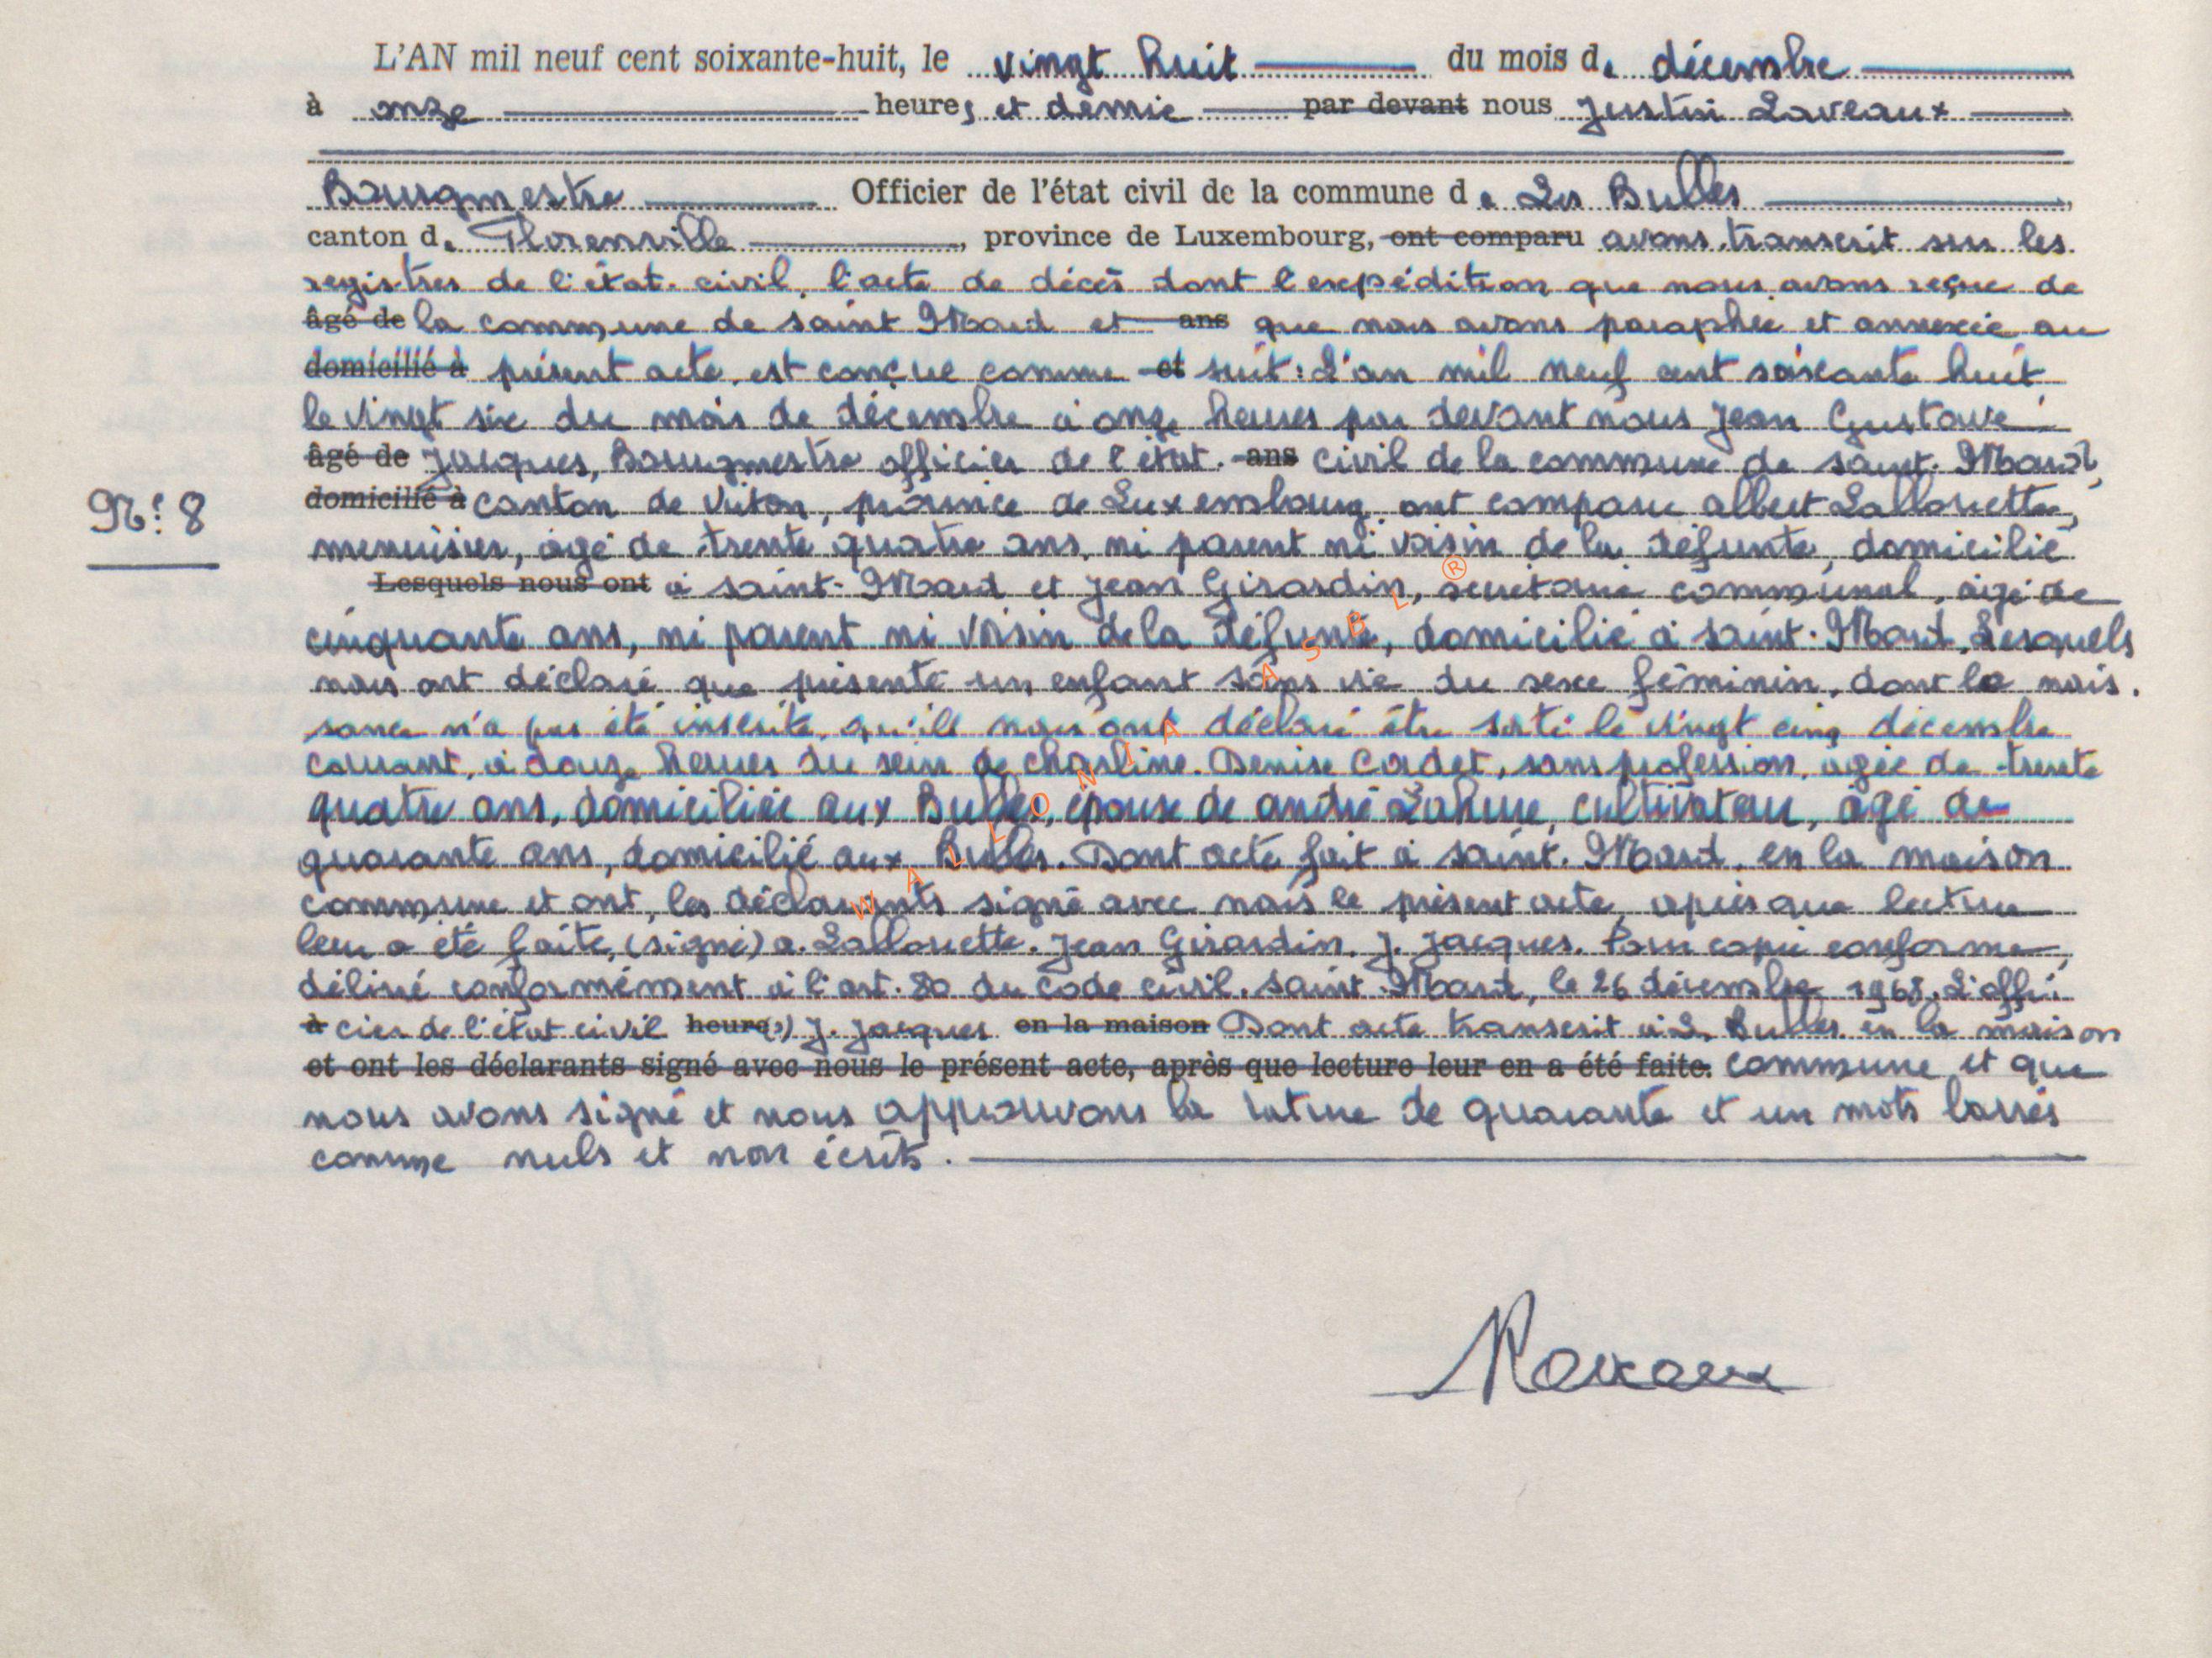 L'AN mil neuf cent soixante-huit, le vingt huit du mois de décembre
à onze heures et demie par devant nous Justin Laveaux
Bourgmestre Officier de l'état civil de la commune de Les Bulles,
canton de Florenville, province de Luxembourg, ont comparu avons transcrit sur les
registres de l'état civil, l'acte de décès dont l'expédition que nous avons reçue de
âgé de la commune de Saint Mard et ans que nous avons paraphée et annexée au
domicilié à présent acte est conçue comme et suit : L'an mil neuf cent soixante huit
le vingt six du mois de décembre à onze heures par devant nous Jean Gustave
âgé de Jacques, Bourgmestre officier de l'état ans civil de la commune de Saint-Mard,
N° 8
domicilié à canton de Virton, province de Luxembourg ont comparu Albert Lallouette,
menuisier, âgé de trente quatre ans, ni parent ni voisin de la défunte, domicilié
Lesquels nous ont à Saint-Mard et Jean Girardin, secrétaire communal, âgé de
cinquante ans, ni parent ni voisin de la défunte, domicilié à Saint-Mard. Lesquels
nous ont déclaré que présenté un enfant sans vie du sexe féminin, dont la nais-
sance n'a pas été inscrite, qu'ils nous ont déclaré être sorti le vingt cinq décembre
courant, à douze heures du sein de Charline Denise Cadet, sans profession, âgée de trente
quatre ans, domiciliée aux Bulles, épouse de André Lahure, cultivateur, âgé de
quarante ans, domicilié aux Bulles. Dont acte fait à Saint-Mard, en la maison
commune et ont, les déclarants signé avec nous le présent acte, après que lecture
leur a été faite, (signé) A. Lallouette. Jean Girardin. J. Jacques. Pour copie conforme,
délivré conformément à l'art. 80 du Code civil. Saint-Mard, le 26 décembre 1968. L'offi-
à cier de l'état civil heure(s) J. Jacques en la maison Dont acte transcrit à Les Bulles en la maison
et ont les déclarants signé avec nous le présent acte, après que lecture leur en a été faite. commune et que
nous avons signé et nous approuvons la rature de quarante et un mots barrés
comme nuls et non écrits.
WALLONIA ASBL ®